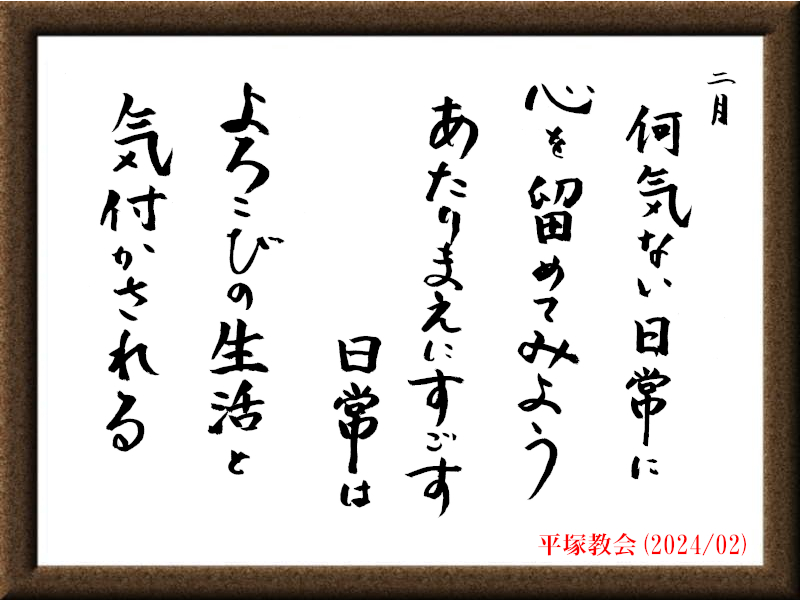 二月
何気ない日常に
心を留めてみよう
あたりまえにすごす
日常は
よろこびの生活と
気付かされる
平塚教会(2024/02)